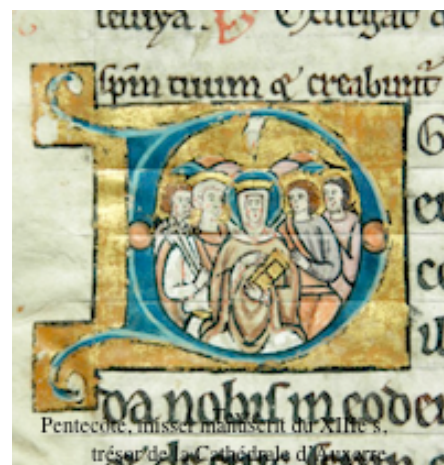 leluya. Exurgat
spm tuum & creabunt
D
da nobis in eodem
Pentecôte, missel manuscrit du XIIIe s,
trésor de la Cathédrale d'Auxerre